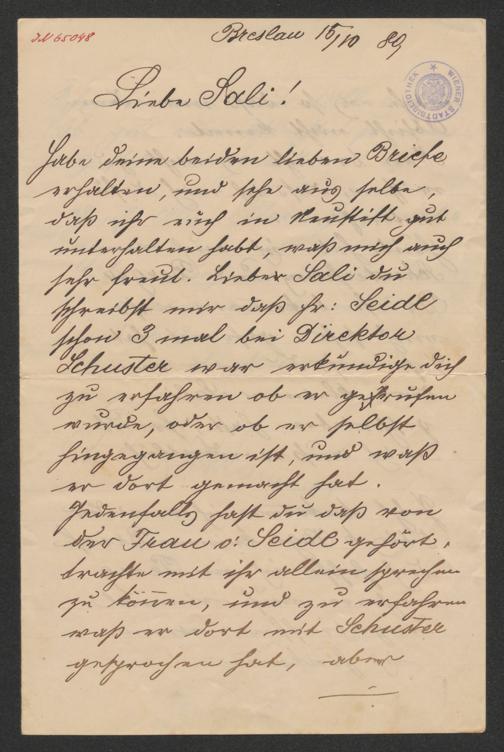 JN 65048
Breslau 15/10 89
WIENER STADTBIBLIOTHEK
Liebe Sali!
Habe deine beiden lieben Briefe
erhalten, und sehe aus selbe,
daß ihr euch in Neustift gut
unterhalten habt, waß mich auch
sehr freut. Lieber Sali du
schreibst mir daß hr: Seidl
schon 3 mal bei Direktor
Schuster war erkundige dich
zu erfahren ob er gerufen
wurde, oder ob er selbst
hingegangen ist, und waß
er dort gemacht hat.
Jedenfalls hast du daß von
der Frau v: Seidl gehört,
trachte mit ihr allein sprechen
zu können, und zu erfahren
waß er dort mit Schuster
gesprochen hat, aber